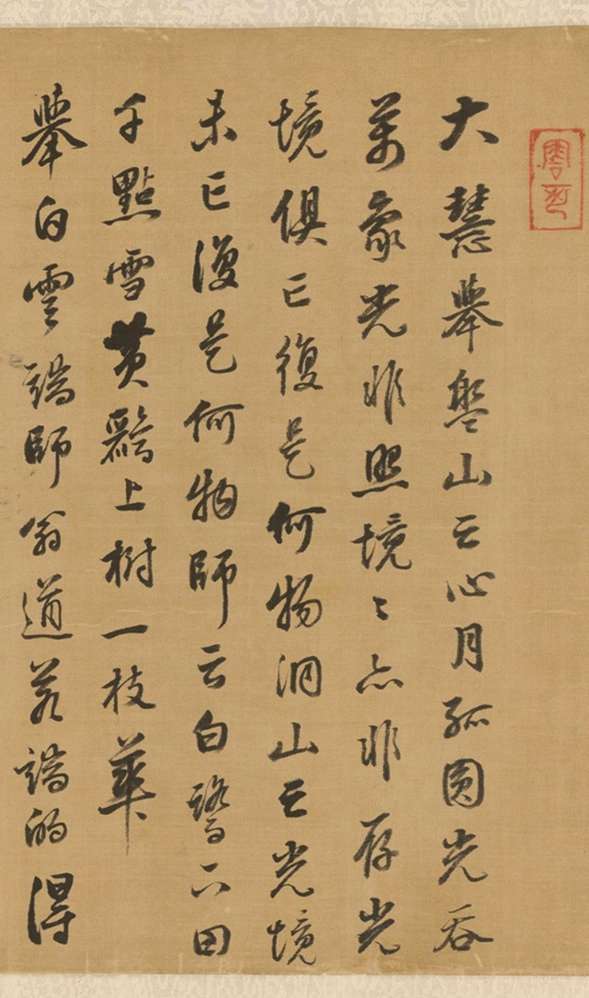 大慧舉盤山云心月孤圓光吞
萬象光非照境〻亦非存光
境俱亡復是何物洞山云光境
未亡復是何物師云白鷺下田
千點雪黃鸝上樹一枝華
舉白雲端師翁道若端的得